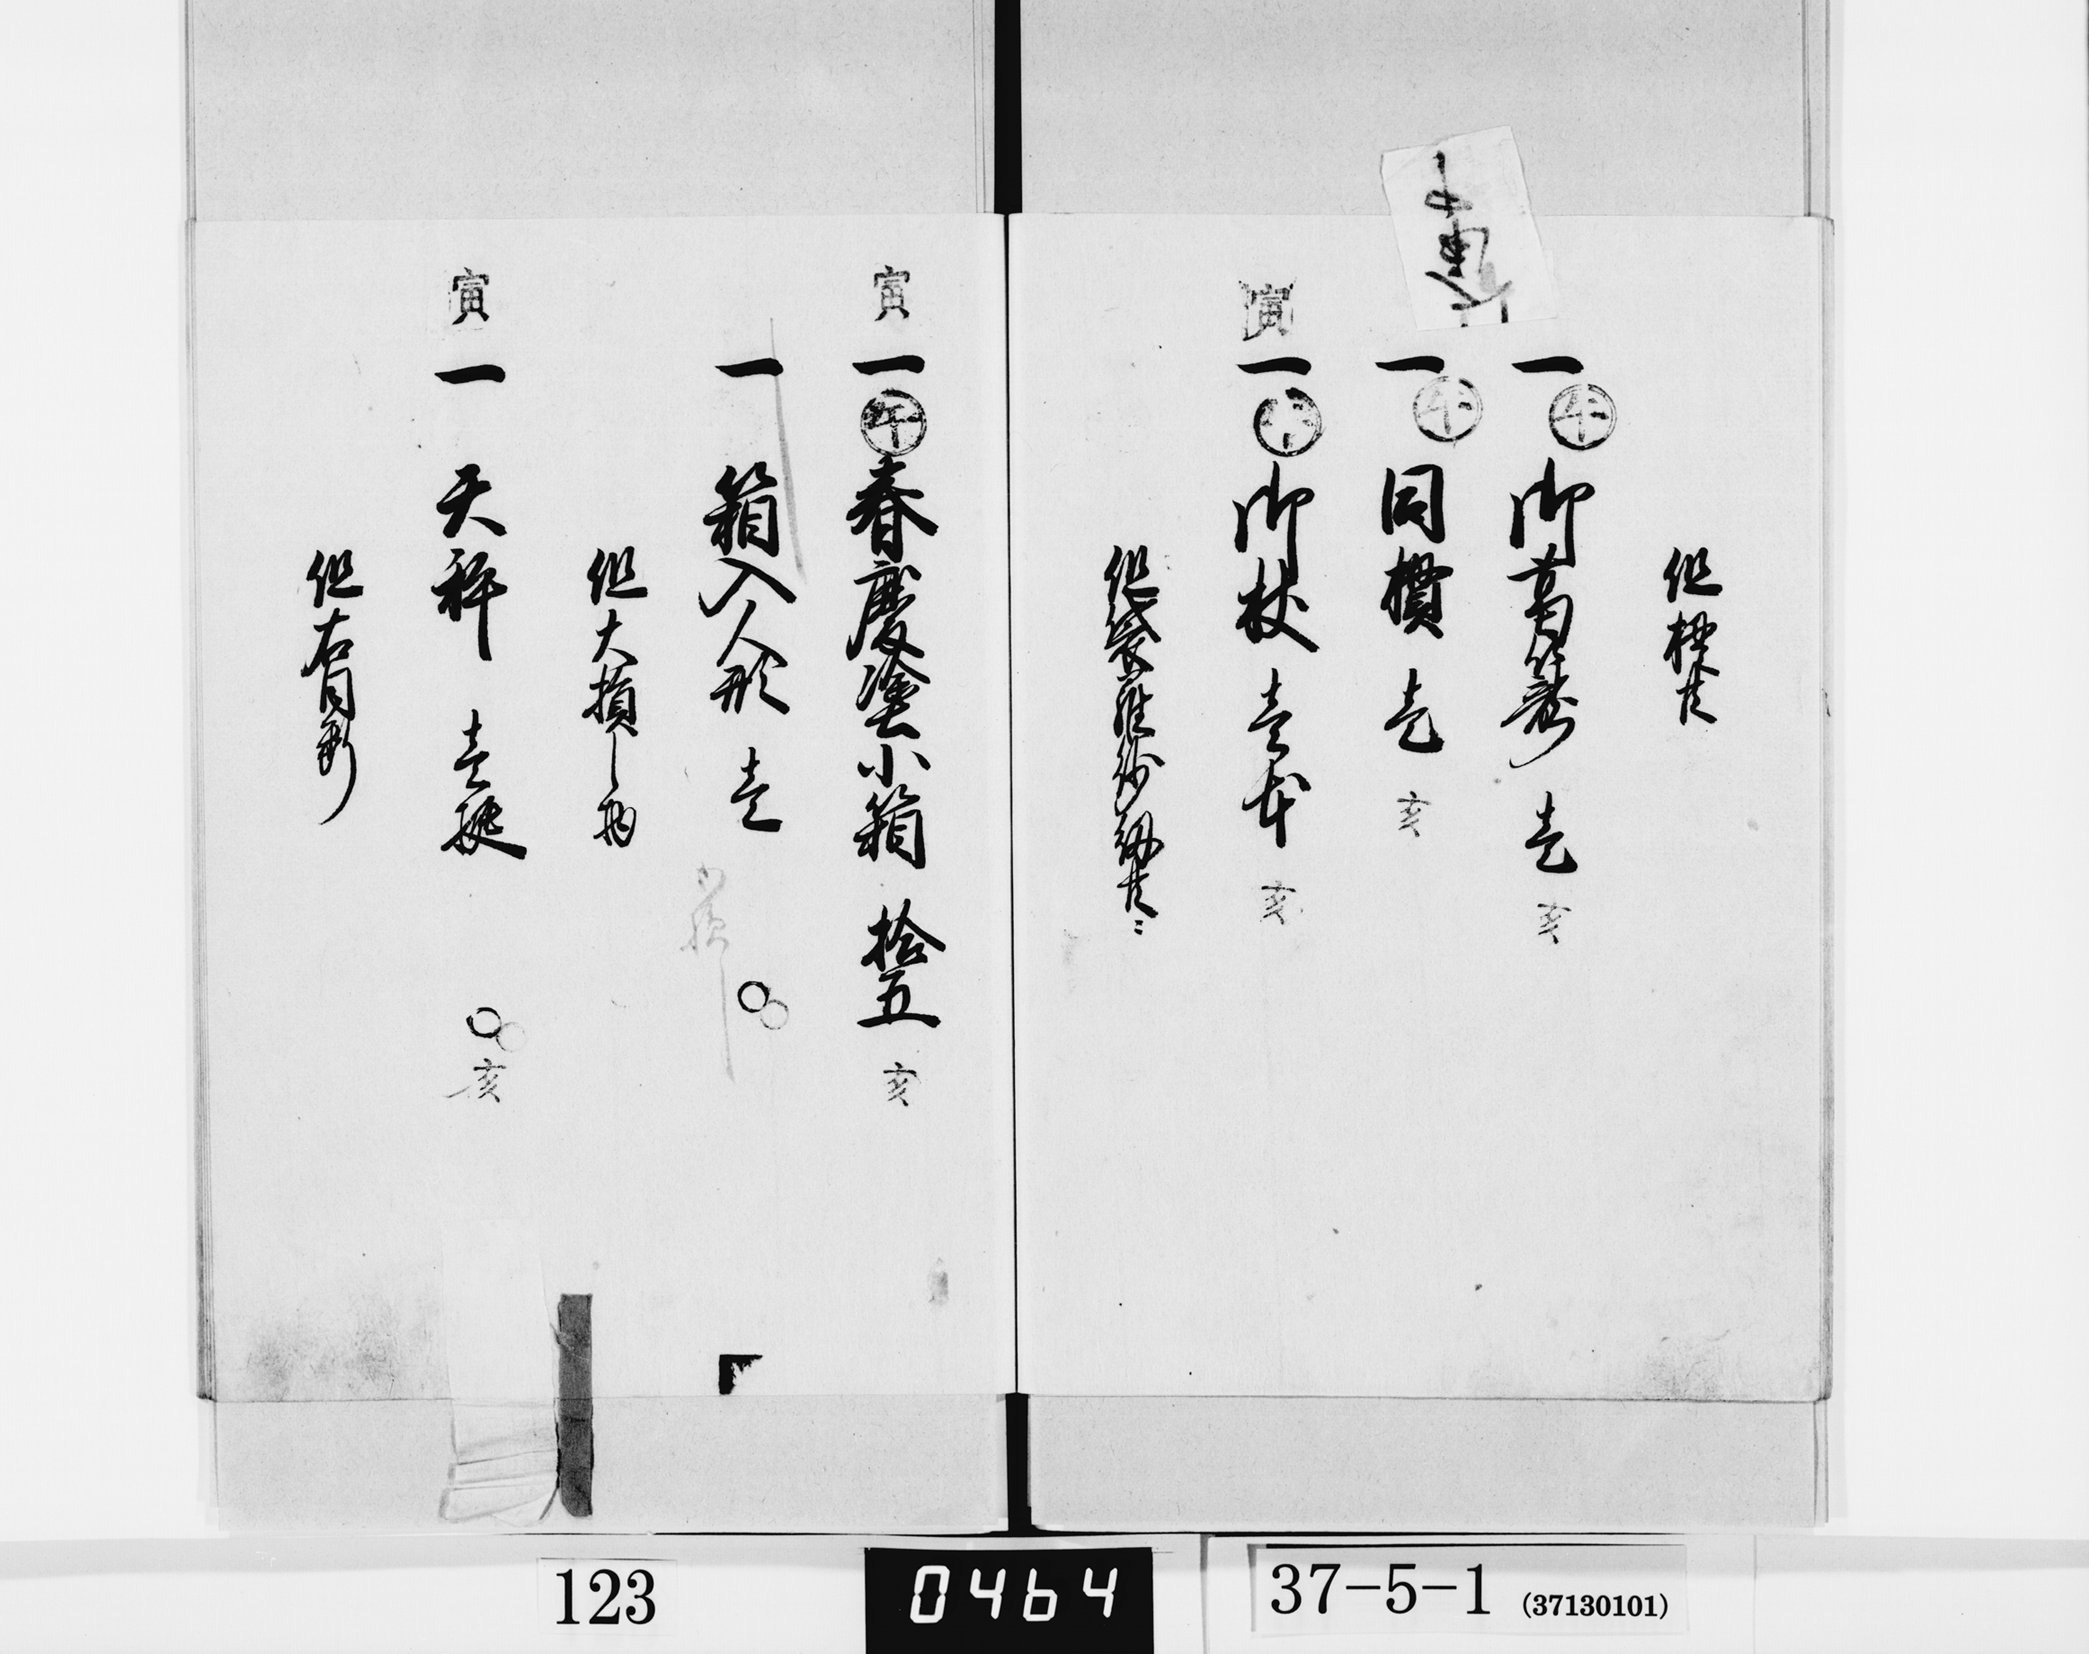 但櫃共
一 午 御葛籠 壱 亥
一 午 同櫃 壱 亥
寅 一 午 御杖 壱本 亥
但袋羅紗紐共ニ
寅 一 午 春慶塗小箱 拾五 亥
一 箱入人形 壱
但大損し物
寅 一 天秤 壱挺 亥
但右同断
123
0464
37-5-1 (37130101)